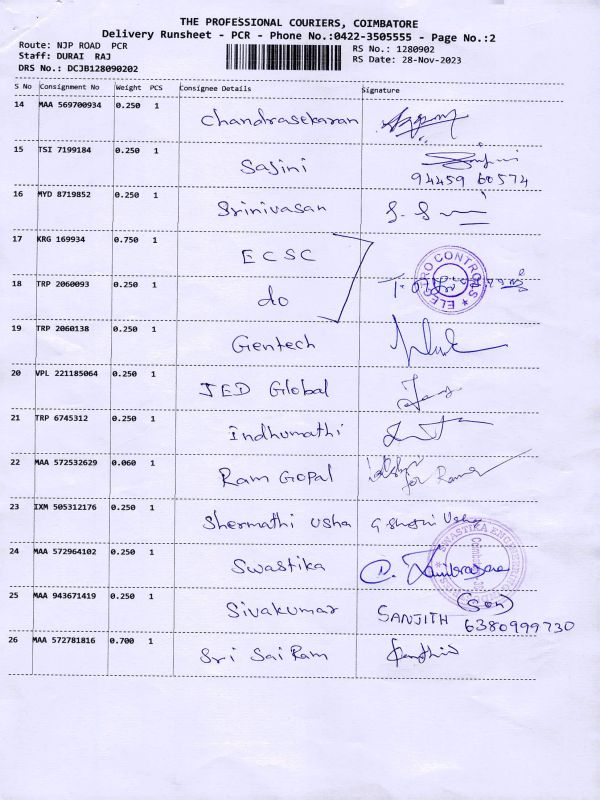 THE PROFESSIONAL COURIERS, COIMBATORE
Delivery Runsheet - PCR - Phone No.:0422-3505555 - Page No.:2
Route: NJP ROAD PCR RS No.: 1280902
Staff: DURAI RAJ RS Date: 28-Nov-2023
DRS No.: DCJB128090202
S No Consignment No Weight PCS Consignee Details Signature
14 MAA 569700934 0.250 1 Chandrasekaran
15 TSI 7199184 0.250 1 Sajini
94459 60574
16 MYD 8719852 0.250 1 Srinivasan
17 KRG 169934 0.750 1 ECSC
18 TRP 2060093 0.250 1 do
19 TRP 2060138 0.250 1 Gentech
20 VPL 221185064 0.250 1 JED Global
21 TRP 6745312 0.250 1 Indhumathi
22 MAA 572532629 0.060 1 Ram Gopal for
23 IXM 505312176 0.250 1 Shermathi usha Usha
24 MAA 572964102 0.250 1 Swastika
SWASTIKA
25 MAA 943671419 0.250 1 Sivakumar SANJITH (Son)
6380999730
26 MAA 572781816 0.700 1 Sri Sai Ram